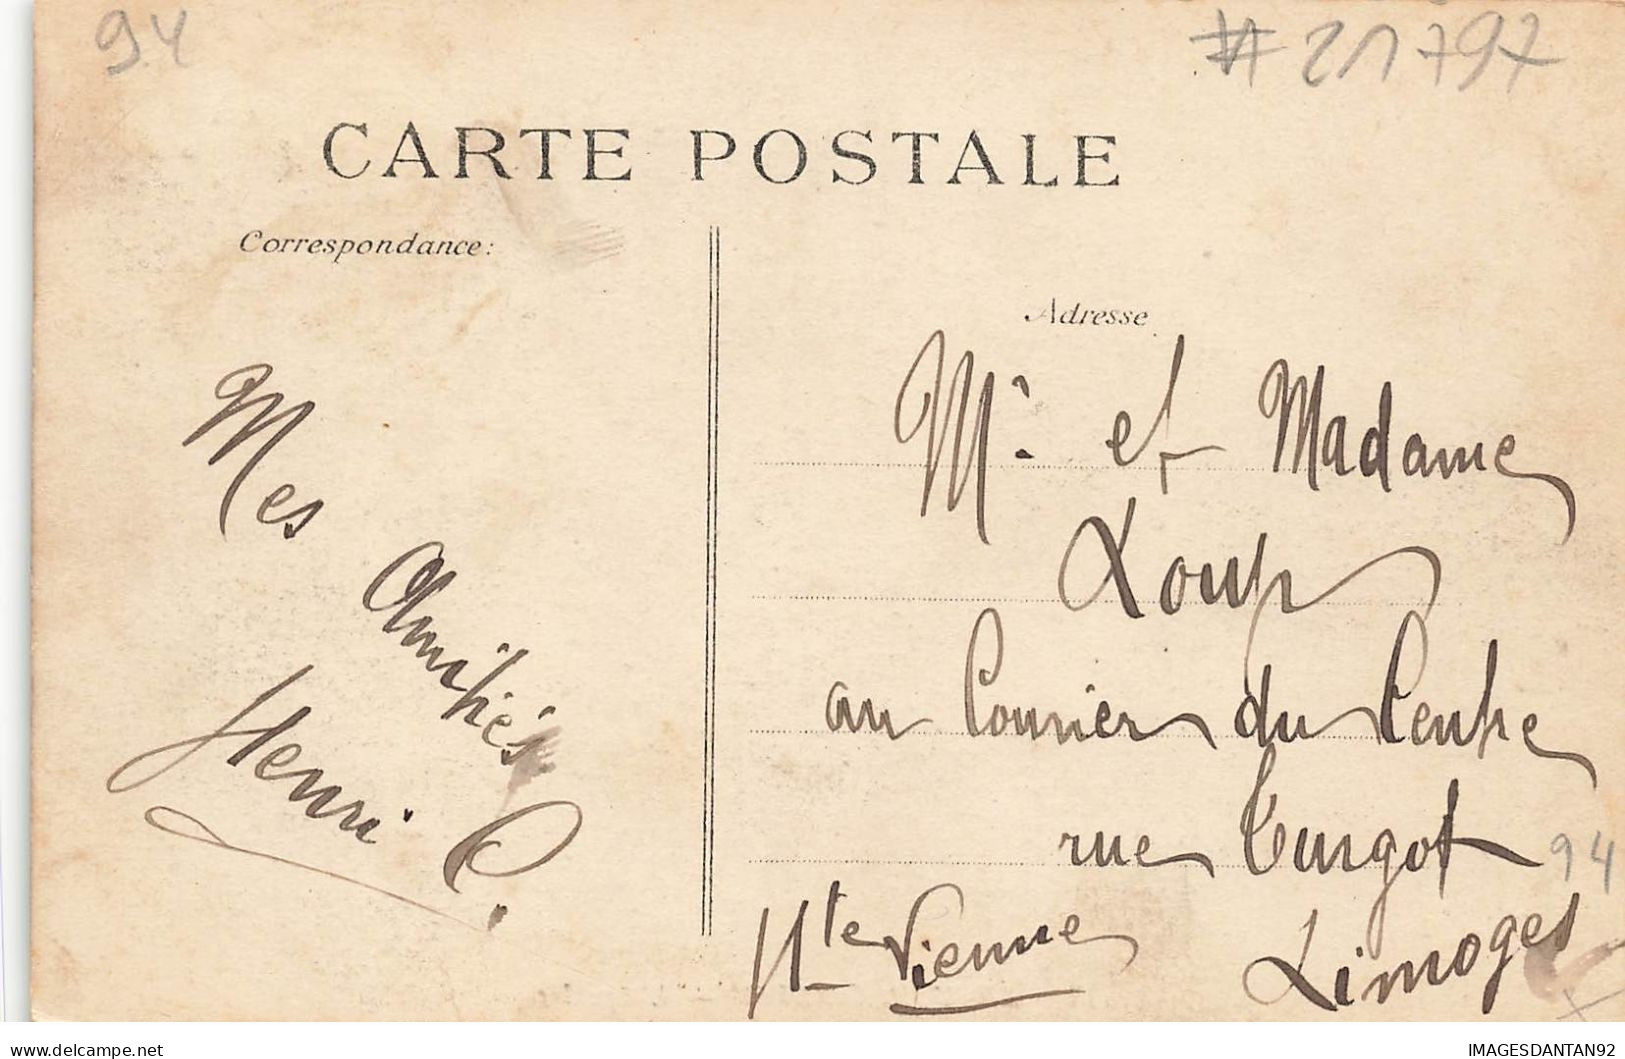 94
#21797
CARTE POSTALE
Correspondance:
Adresse
Mes Amitiés
Henri C.
Mr. et Madame
Loup
au Courrier du Centre
rue Turgot
94
Limoges
Hte Vienne
delcampe.net
IMAGESDANTAN92